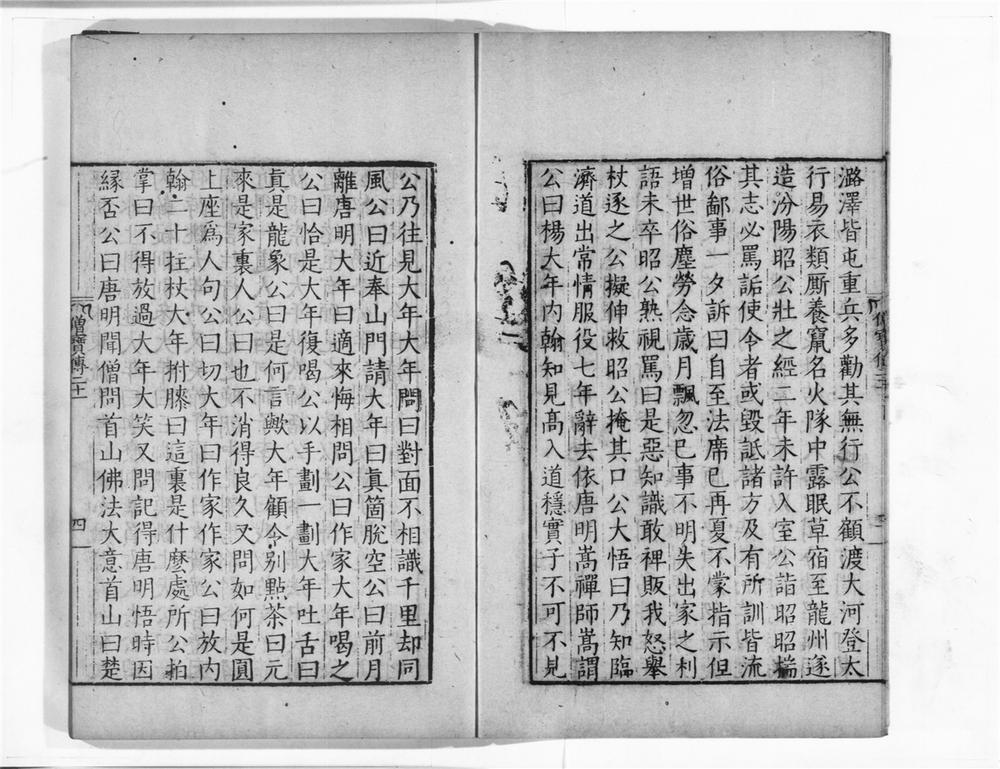 潞澤皆屯重兵多勸其無行公不顧渡大河登太
行易衣類厮養竄名火隊中露眠草宿至龍州遂
造汾陽昭公壯之經二年未許入室公詣昭昭揣
其志必罵詬使令者或毀詆諸方及有所訓皆流
俗鄙事一夕訴曰自至法席已再夏不蒙指示但
增世俗塵勞念歲月飄忽已事不明失出家之利
語未卒昭公熟視罵曰是惡知識敢裨販我怒舉
杖逐之公擬伸救昭公掩其口公大悟曰乃知臨
濟道出常情服役七年辭去依唐明嵩禪師嵩謂
公曰楊大年內翰知見高入道穩實子不可不見
公乃往見大年大年問曰對面不相識千里却同
風公曰近奉山門請大年曰真箇脫空公曰前月
離唐明大年曰適來悔相問公曰作家大年喝之
公曰恰是大年復喝公以手劃一劃大年吐舌曰
真是龍象公曰是何言歟大年顧令別點茶曰元
來是家裏人公曰也不消得良久又問如何是圓
上座爲人句公曰切大年曰作家作家公曰放內
翰二十拄杖大年拊膝曰這裏是什麼處所公拍
掌曰不得放過大年大笑又問記得唐明悟時因
緣否公曰唐明聞僧問首山佛法大意首山曰楚
僧寶傳二十一
四